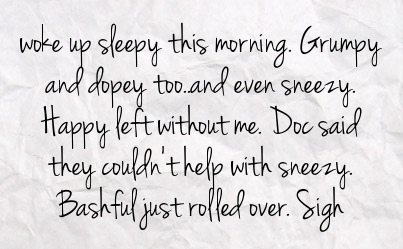 woke up sleepy this morning. Grumpy
and dopey too..and even sneezy.
Happy left without me. Doc said
they couldn't help with sneezy.
Bashful just rolled over. Sigh